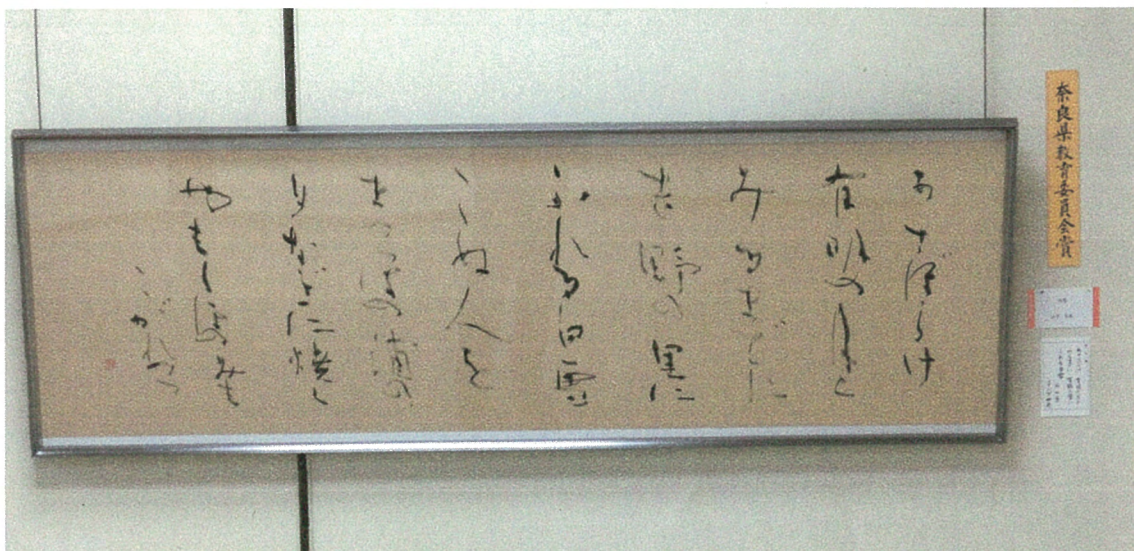 奈良県教育委員会賞
あさぼらけ
有明の月と
みるまでに
吉野の里に
ふれる白雪
こぬ人を
まつほの浦の
夕なぎに焼く
やもしほのみも
こがれつゝ